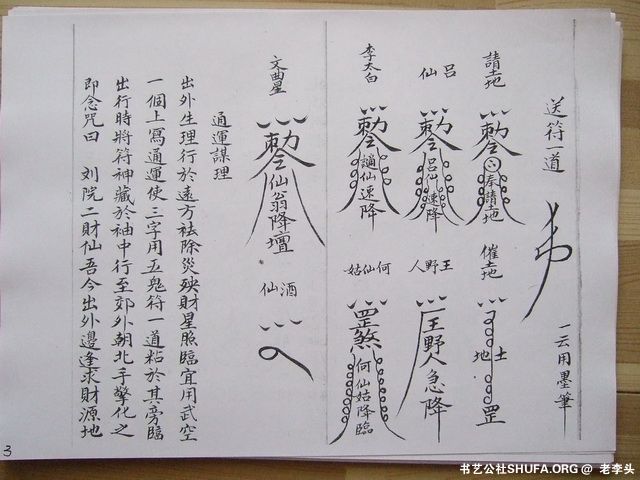 送符一道
一云用墨筆
請土地
敕令
奉請土地
催土地
土地
罡
呂仙
敕令
呂仙速降
王野人
王野人急降
李太白
敕令
謫仙速降
何仙姑
罡煞
何仙姑降臨
文曲星
敕令
仙翁降壇
酒仙
通運謀理
出外生理行於遠方祛除災殃財星照臨宜用武空
一個上寫通運使三字用五鬼符一道粘於其旁臨
出行時將符神藏於袖中行至郊外朝北手擎化之
即念咒曰 刘院二財仙吾今出外邊逢求財源地
3
书艺公社SHUFA.ORG @ 老李头